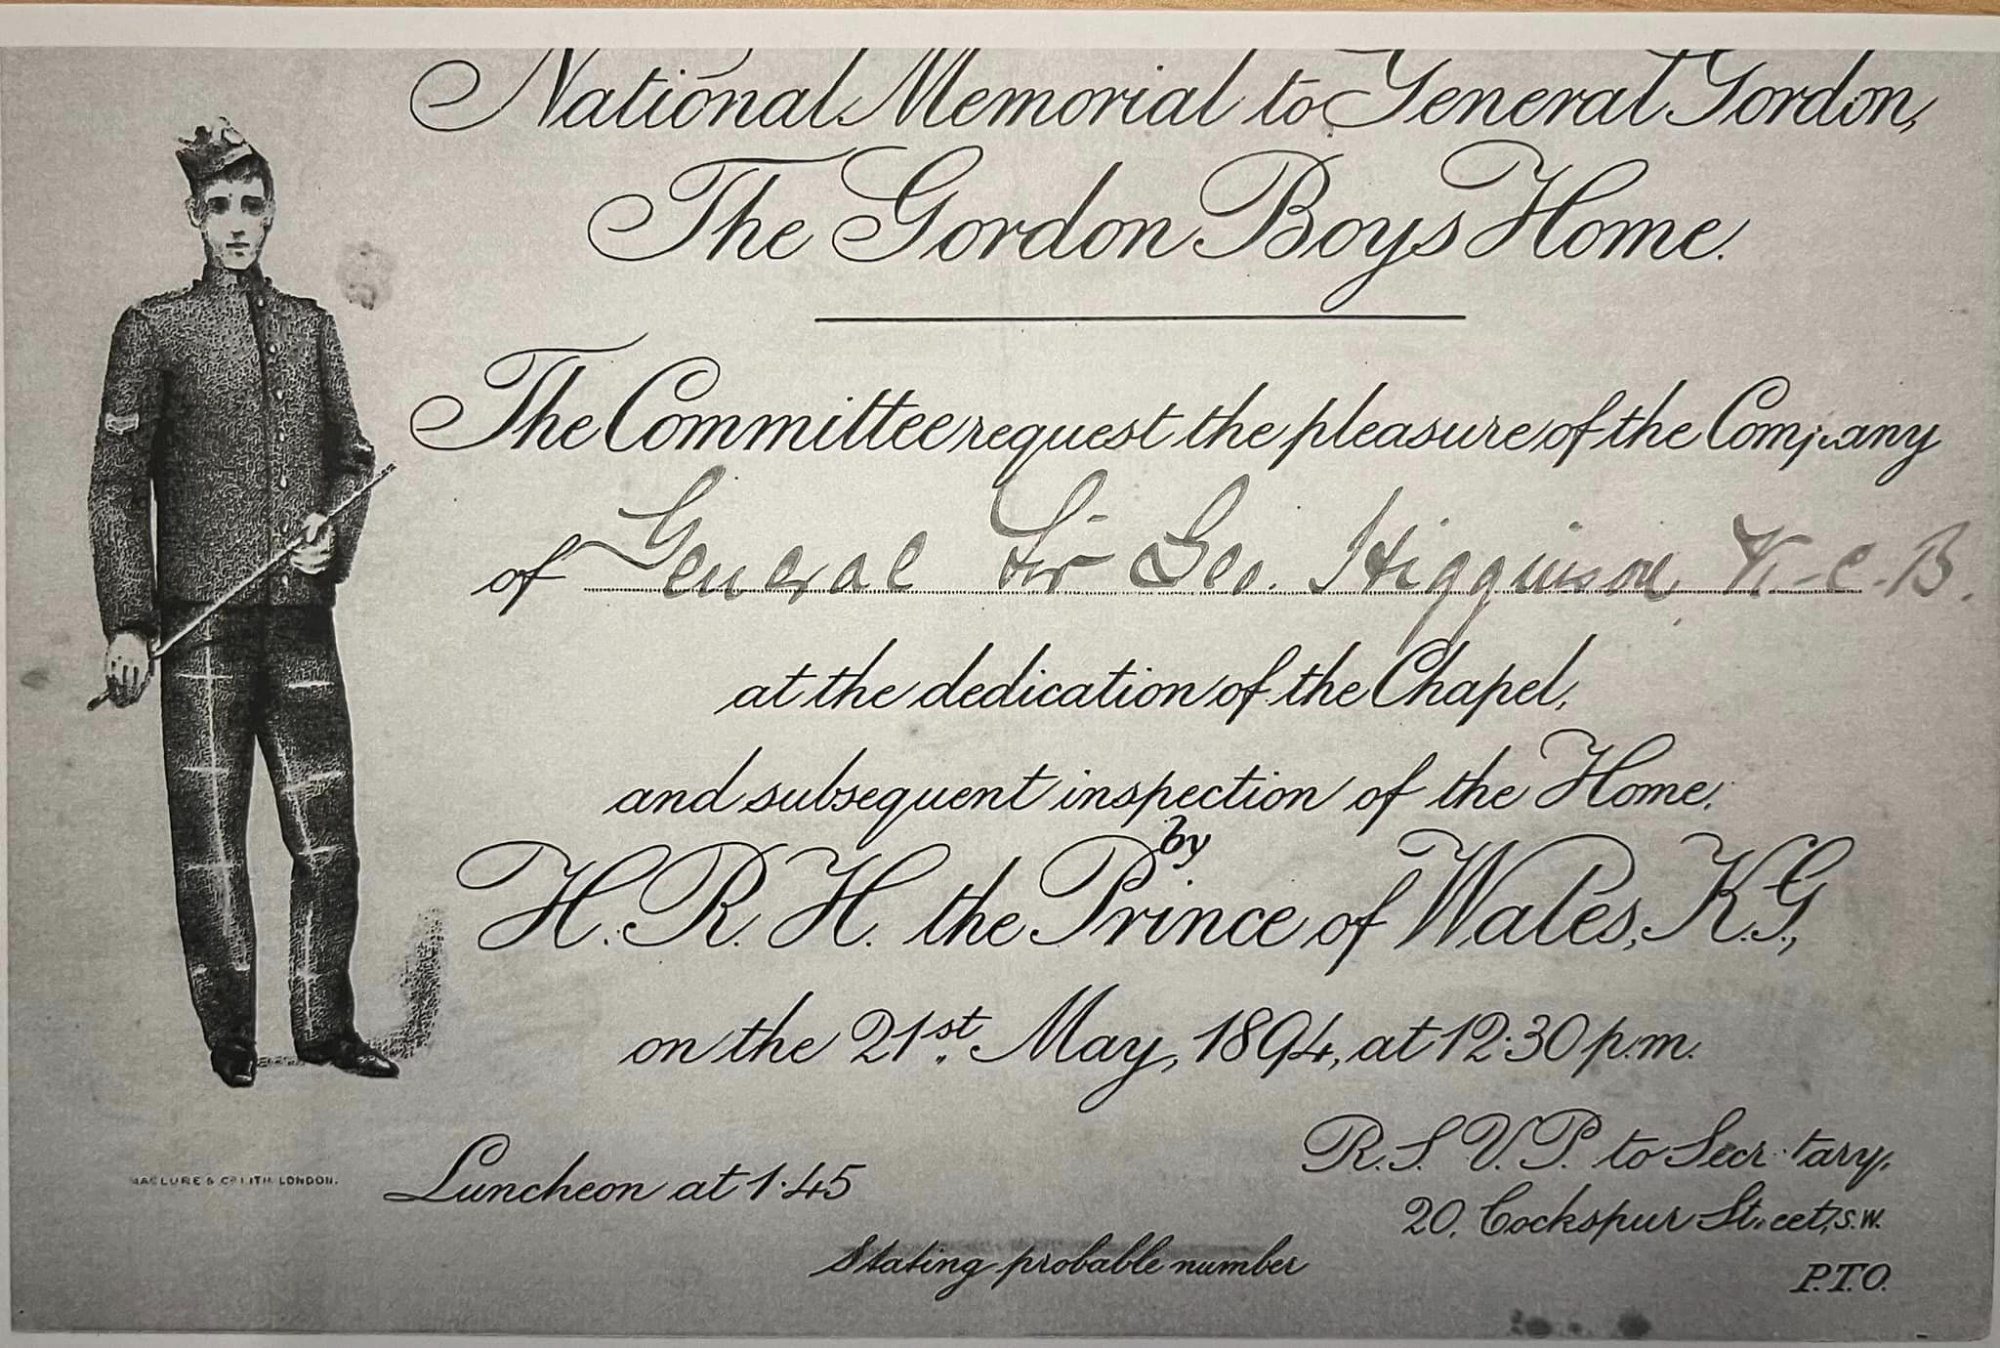 National Memorial to General Gordon,
The Gordon Boys Home.
The Committee request the pleasure of the Company
of General Sir Geo. Higginson, K.C.B.
at the dedication of the Chapel,
and subsequent inspection of the Home,
by
H.R.H. the Prince of Wales, K.G.,
on the 21st. May, 1894, at 12.30 p.m.
Luncheon at 1.45
R.S.V.P. to Secretary,
20, Cockspur Street, S.W.
Stating probable number
P.T.O.
MACLURE & Co LITH. LONDON.